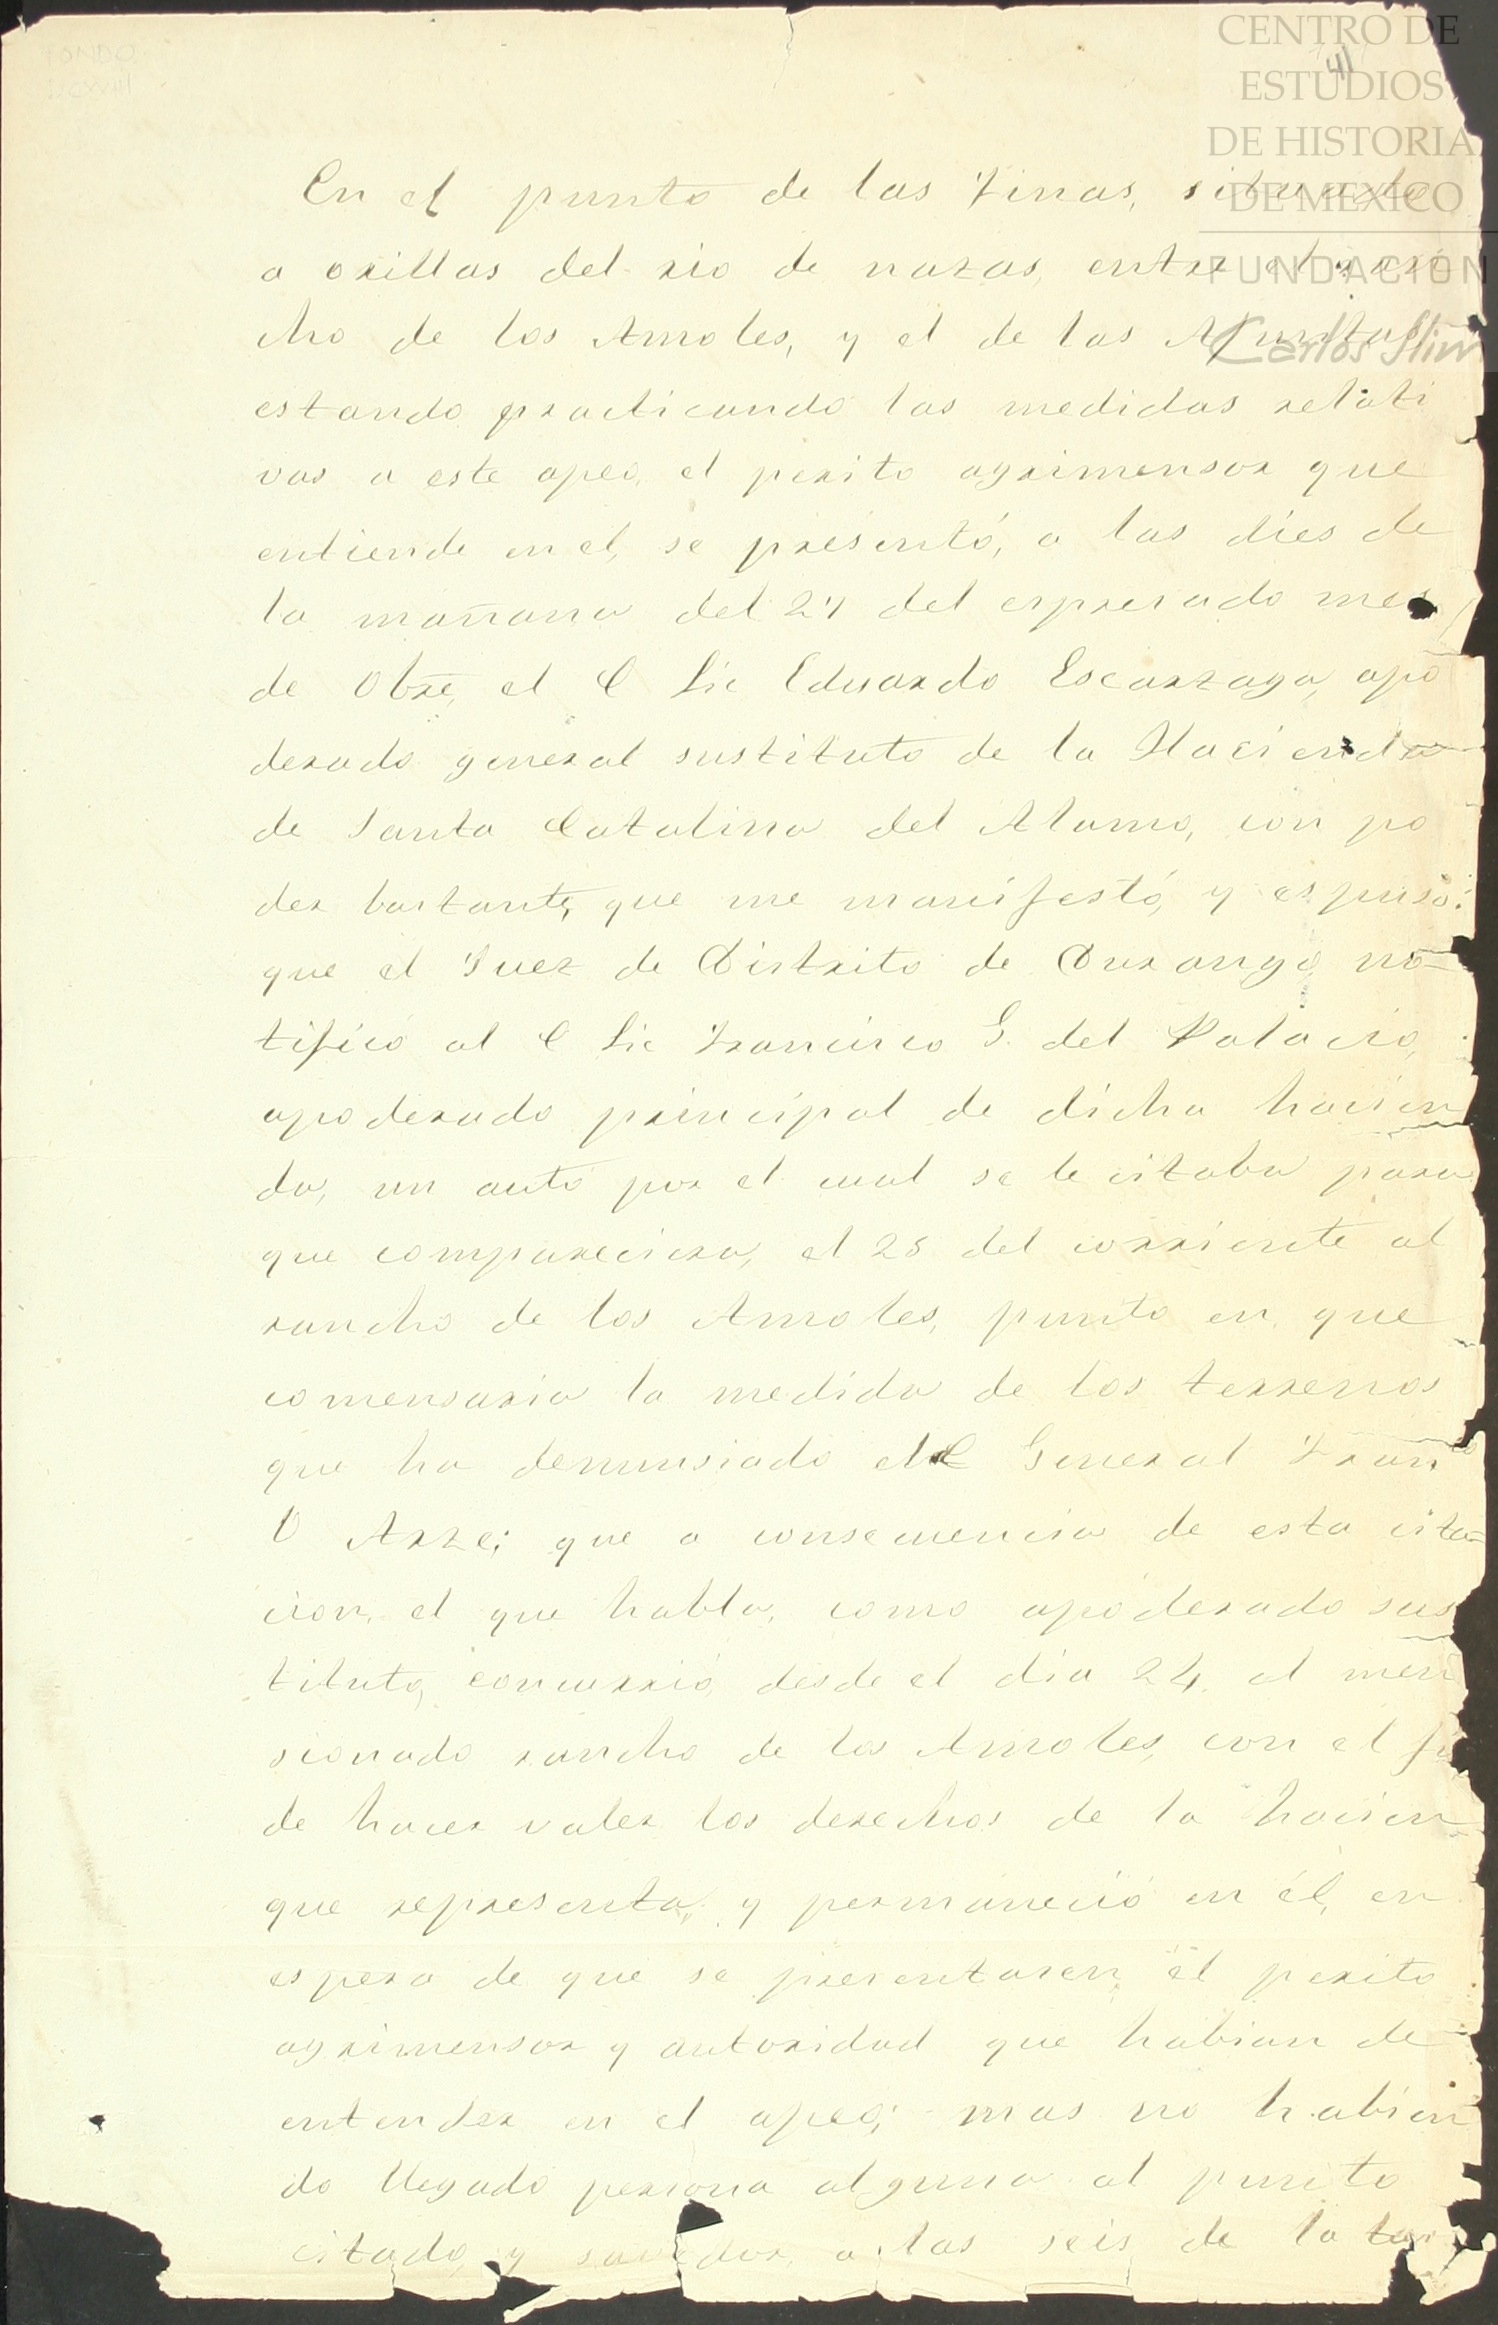 FONDO
DCXVIII
41
CENTRO DE
ESTUDIOS
DE HISTORIA
DE MEXICO
FUNDACIÓN
Carlos Slim
En el punto de las Finas, situado
a orillas del rio de nazas, entre el ran
cho de los Amoles, y el de las
estando practicando las medidas relati
vas a este apeo, el perito agrimensor que
entiende en el, se presentó, a las dies de
la mañana del 27 del expresado mes
de Obre, el C Lic Eduardo Escarzaga, apo
derado general sustituto de la Hacienda
de Santa Catalina del Alamo, con po
der bastante, que me manifestó, y espuso:
que el Juez de Distrito de Durango no
tificó al C Lic Francisco G. del Palacio,
apoderado principal de dicha hacien
da, un auto por el cual se le citaba para
que compareciera, el 25 del corriente al
rancho de los Amoles, punto en que
comensaria la medida de los terrenos
que ha denunsiado el C General Franco
O Arze; que a consecuencia de esta cita=
cion, el que habla, como apoderado sus
tituto, concurrió desde el dia 24 al men
sionado rancho de los Amoles, con el fi
de hacer valer los derechos de la hacien
que representa, y permaneció en él, en
espera de que se presentaren el perito
agrimensor y autoridad que habian de
entender en el apeo; mas no habien
do llegado persona alguna al punto
citado, y a las seis de la tar